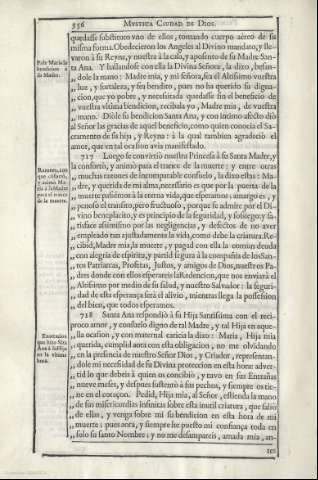 356 MYSTICA CIUDAD DE DIOS.
quedasse substituto vno de ellos, tomando cuerpo aéreo de su
misma forma. Obedecieron los Angeles al Divino mandato, y lle-
varon à su Reyna, y nuestra à la casa, y aposento de su Madre San-
ta Ana. Y hallandose con ella la Divina Señora, la dixo, besan-
dole la mano: Madre mia, y mi señora, sea el Altissimo vuestra
luz, y fortaleza, y sea bendito, pues no ha querido su digna-
cion, que yo pobre, y necessitada quedasse sin el beneficio de
vuestra vltima bendicion, recibala yo, Madre mia, de vuestra
mano. Dióle su bendicion Santa Ana, y con intimo afecto dió
al Señor las gracias de aquel beneficio, como quien conocia el Sa-
cramento de su hija, y Reyna: à la qual tambien agradeció el
amor, que en tal ocasion avia manifestado.
Pide Maria la
bendicion à
su Madre.
717 Luego se convirtió nuestra Princesa à su Santa Madre, y
la confortó, y animò para el trance de la muerte: y entre otras
muchas razones de incomparable consuelo, la dixo estas: Ma-
dre, y querida de mi alma, necessario es que por la puerta de la
muerte passémos à la eterna vida, que esperamos; amargo es, y
penoso el transito, pero fructuoso, porque se admite por el Di-
vino beneplacito, y es principio de la seguridad, y sossiego, y sa-
tisface assimismo por las negligencias, y defectos de no aver
empleado tan ajustadamente la vida, como debe la criatura. Re-
cibid, Madre mia, la muerte, y pagad con ella la comun deuda
con alegria de espiritu, y partid segura à la compañia de los San-
tos Patriarcas, Profetas, Justos, y amigos de Dios, nuestros Pa-
dres donde con ellos esperareis la Redencion, que nos enviará el
Altissimo por medio de su salud, y nuestro Salvador: la seguri-
dad de esta esperança será el alivio, mientras llega la possession
del bien, que todos esperamos.
Razones, con
que
la muerte.
718 Santa Ana respondió à su Hija Santissima con el reci-
proco amor, y consuelo digno de tal Madre, y tal Hija en aque-
lla ocasion, y con maternal caricia la dixo: Maria, Hija mia
querida, cumplid aora con esta obligacion, no me olvidando
en la presencia de nuestro Señor Dios, y Criador, representan-
dole mi necessidad de su Divina proteccion en esta hora: adver-
tid lo que debeis à quien os concibió, y tuvo en sus Entrañas
nueve meses, y despues sustentó à sus pechos, y siempre os tie-
ne en el coraçon. Pedid, Hija mia, al Señor, estienda la mano
de sus misericordias infinitas sobre esta inutil criatura, que salió
de ellas, y venga sobre mi su bendicion en esta hora de mi
muerte: pues aora, y siempre he puesto mi confiança toda en
solo su Santo Nombre: y no me desampareis, amada mia, an-
que hizo Sta.
Ana à su Hija
en la vltima
hora.
tes